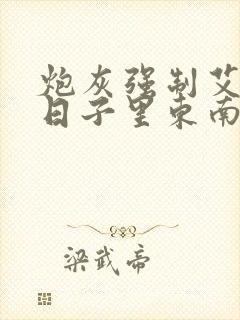 炮灰强制艾
日子里东南
梁武帝